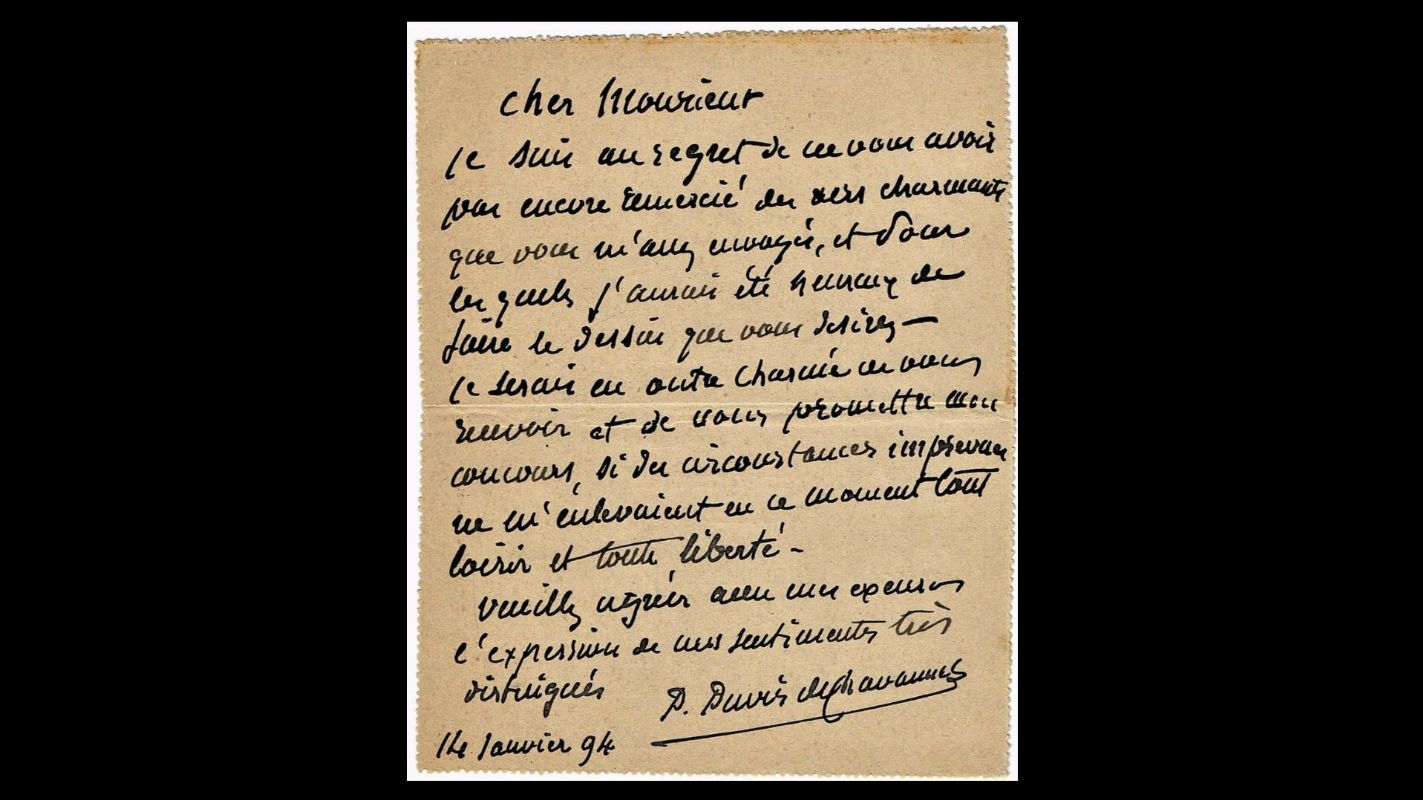 Cher Monsieur
je suis au regret de ne vous avoir
pas encore remercié des vers charmants
que vous m'avez envoyés, et pour
lesquels j'aurais été heureux de
faire le dessin que vous désirez —
je serais en outre charmé de vous
recevoir et de vous promettre mon
concours, si des circonstances imprévues
ne m'enlevaient en ce moment tout
loisir et toute liberté —
Veuillez agréer avec mes excuses
l'expression de mes sentiments très
distingués
P. Puvis de Chavannes
14 Janvier 94